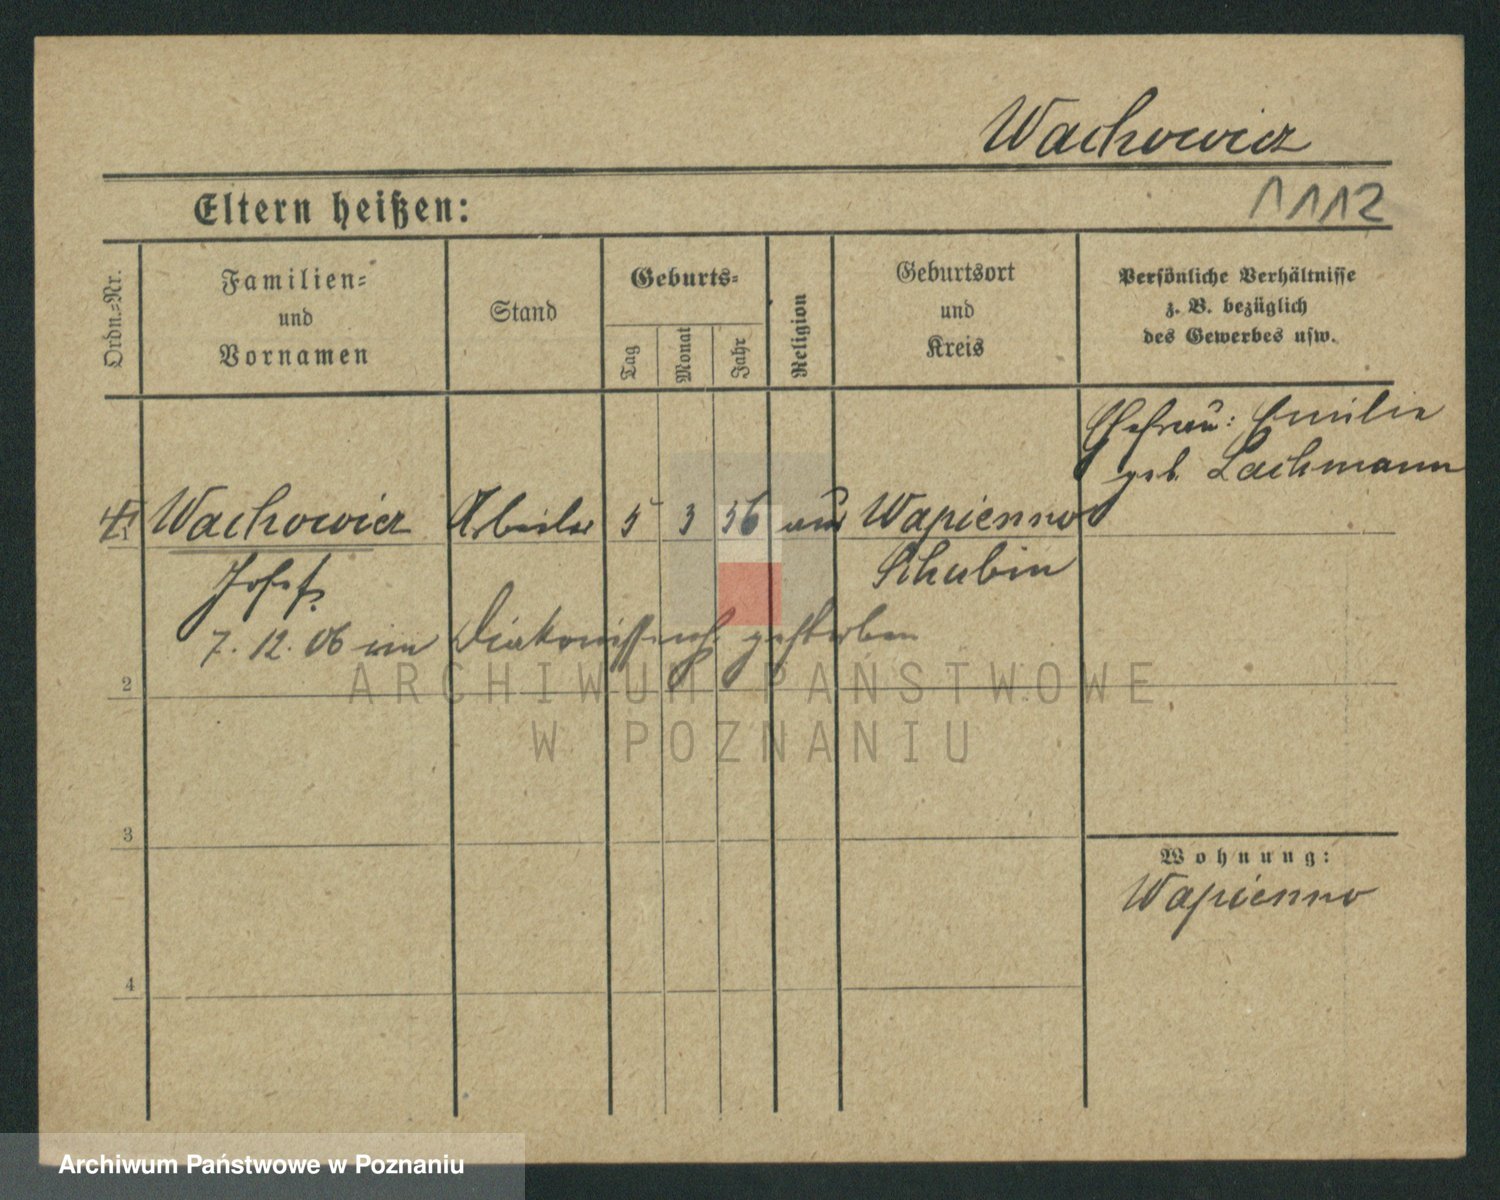 Wachowicz
1112
Eltern heißen:
Ordn.-Nr.
Familien-
und
Vornamen
Stand
Geburts-
Tag
Monat
Jahr
Religion
Geburtsort
und
Kreis
Persönliche Verhältnisse
z. B. bezüglich
des Gewerbes usw.
Ehefrau: Emilie
geb. Lachmann
Wachowicz Arbeiter 5 3 56 Wapienno
Josef Schubin
7. 12. 06 im Diakonissenh. gestorben
2
3
4
Wohnung:
Wapienno
ARCHIWUM PAŃSTWOWE
W POZNANIU
Archiwum Państwowe w Poznaniu